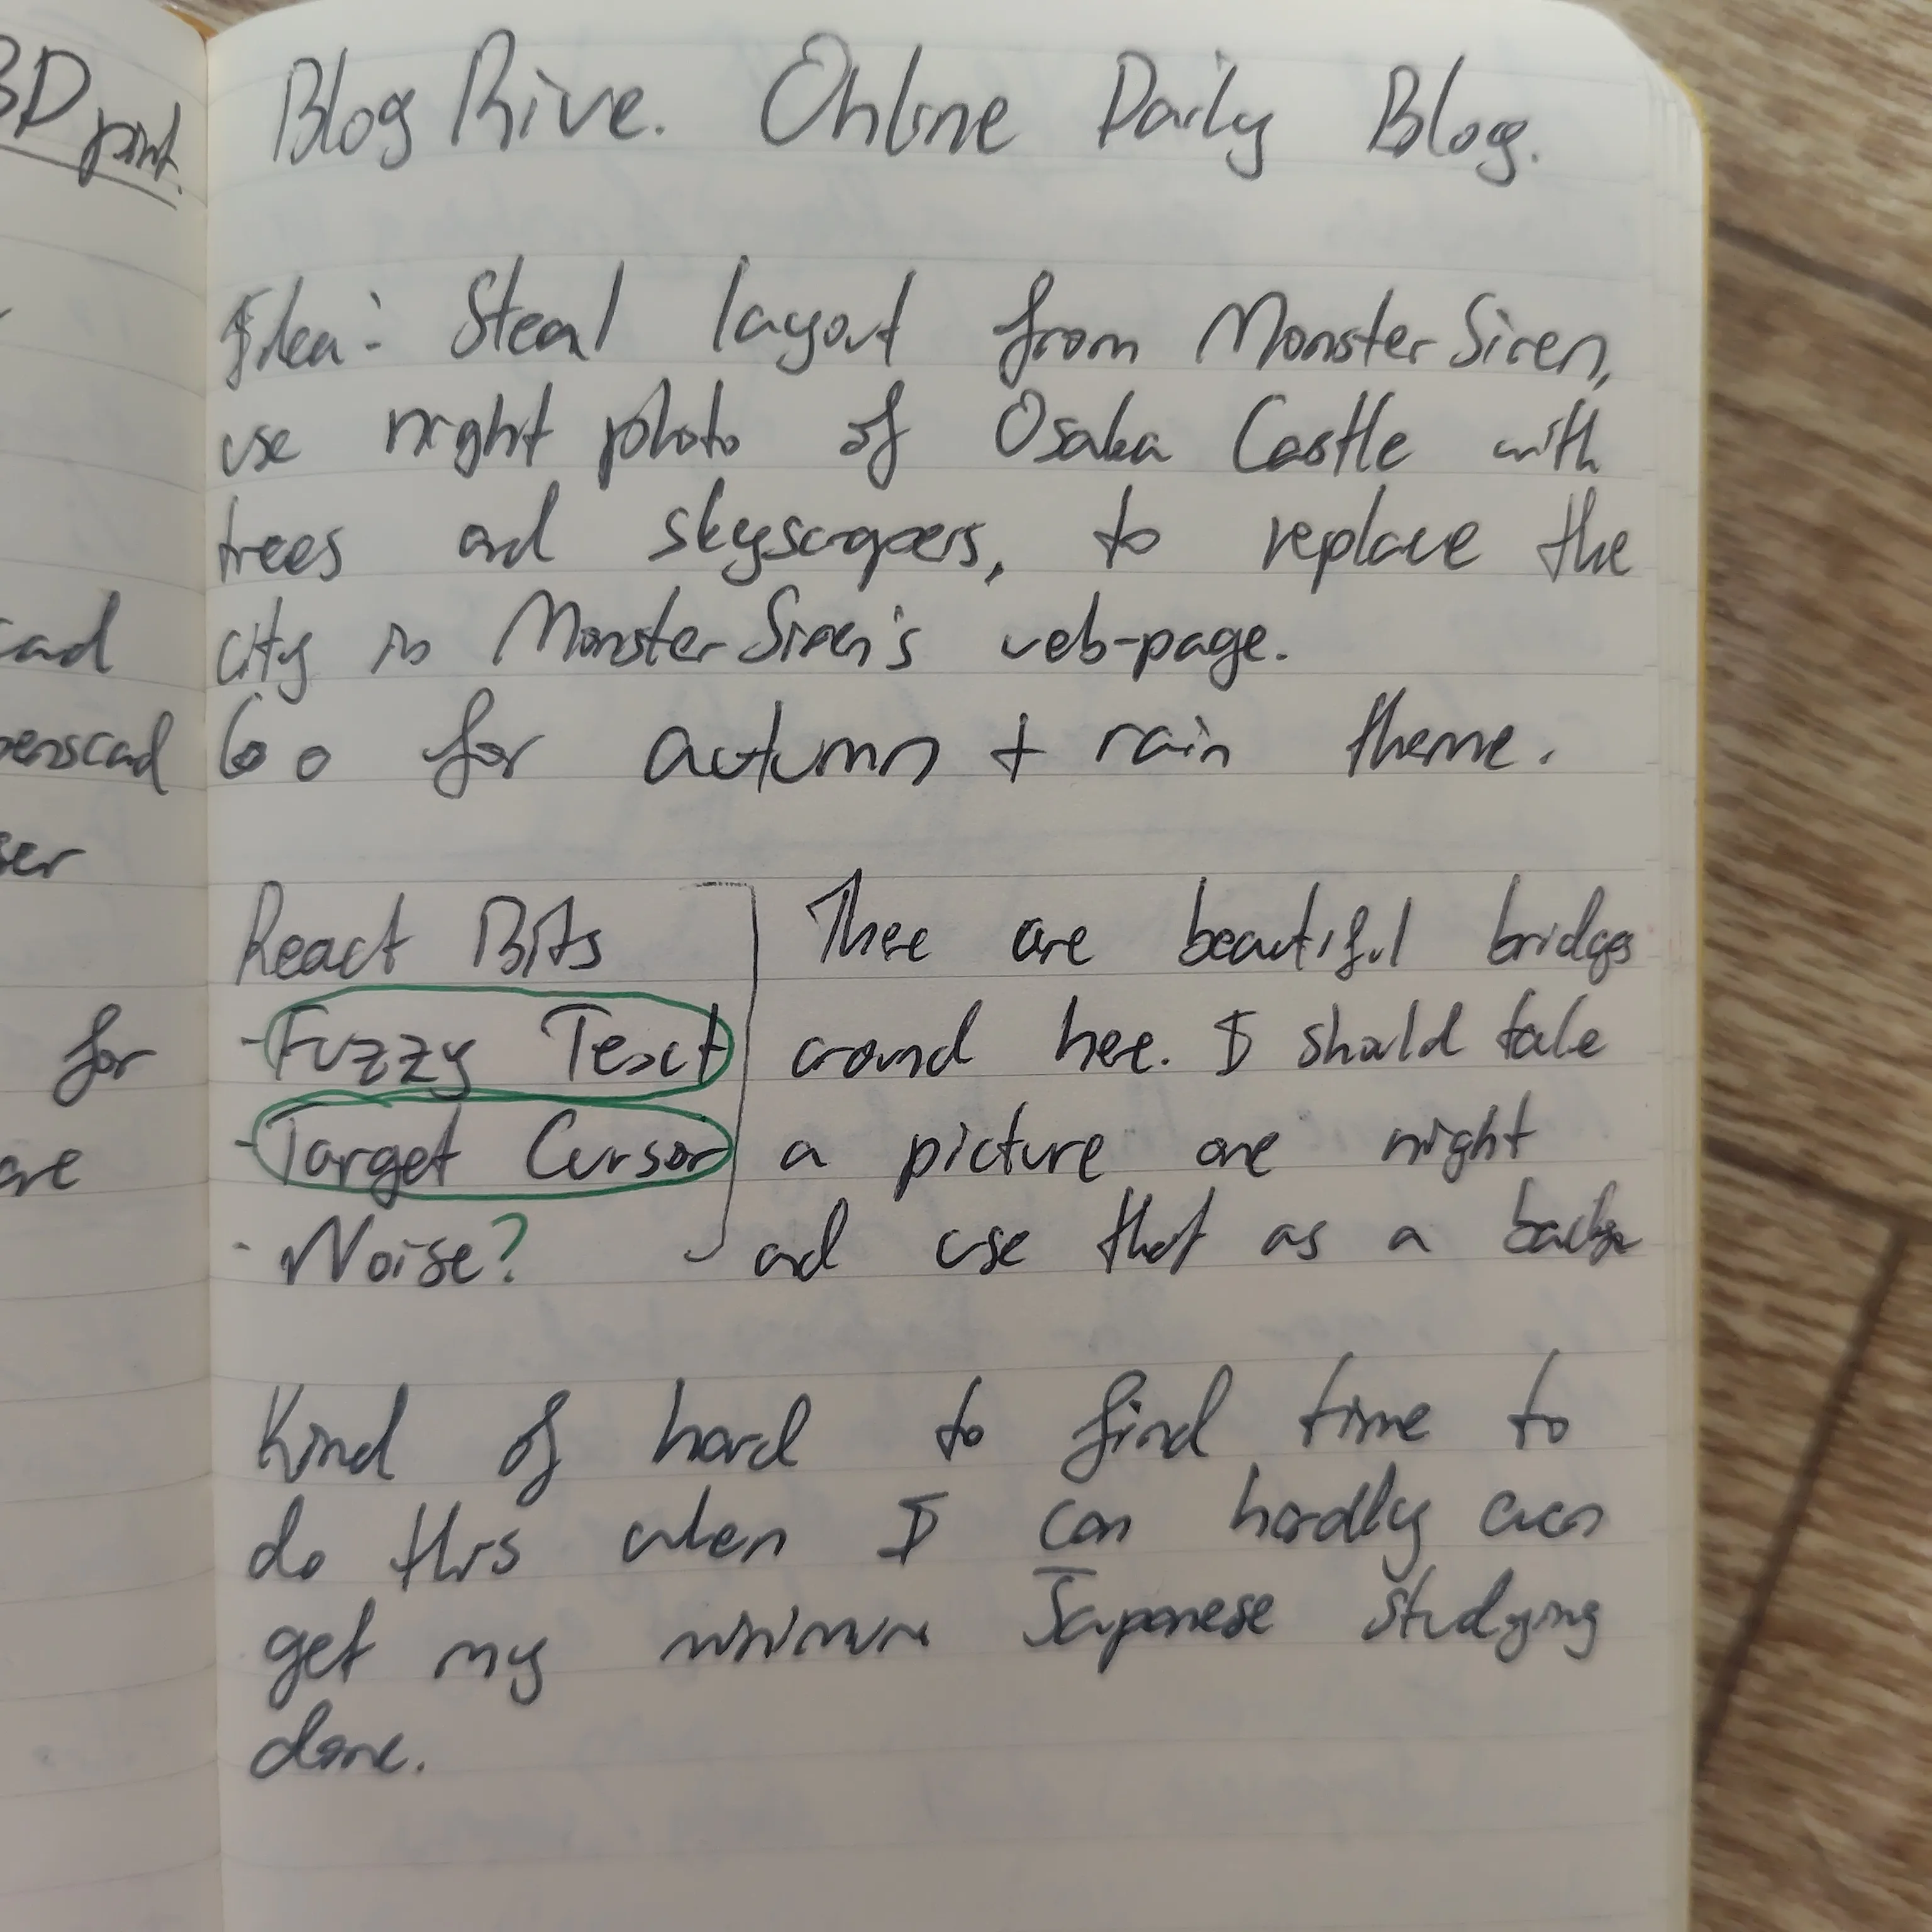 3D print.
cad
penscad
ser
for
are
Blog Rive. Online Daily Blog.
Idea: Steal layout from Monster Siren,
use night photo of Osaka Castle with
trees and skyscrapers, to replace the
city in Monster Siren's web-page.
Go for autumn + rain theme.
React Bits
- Fuzzy Text
- Target Cursor
- Noise?
There are beautiful bridges
around here. I should take
a picture one night
and use that as a
Kind of hard to find time to
do this when I can hardly even
get my minimum Japanese studying
done.